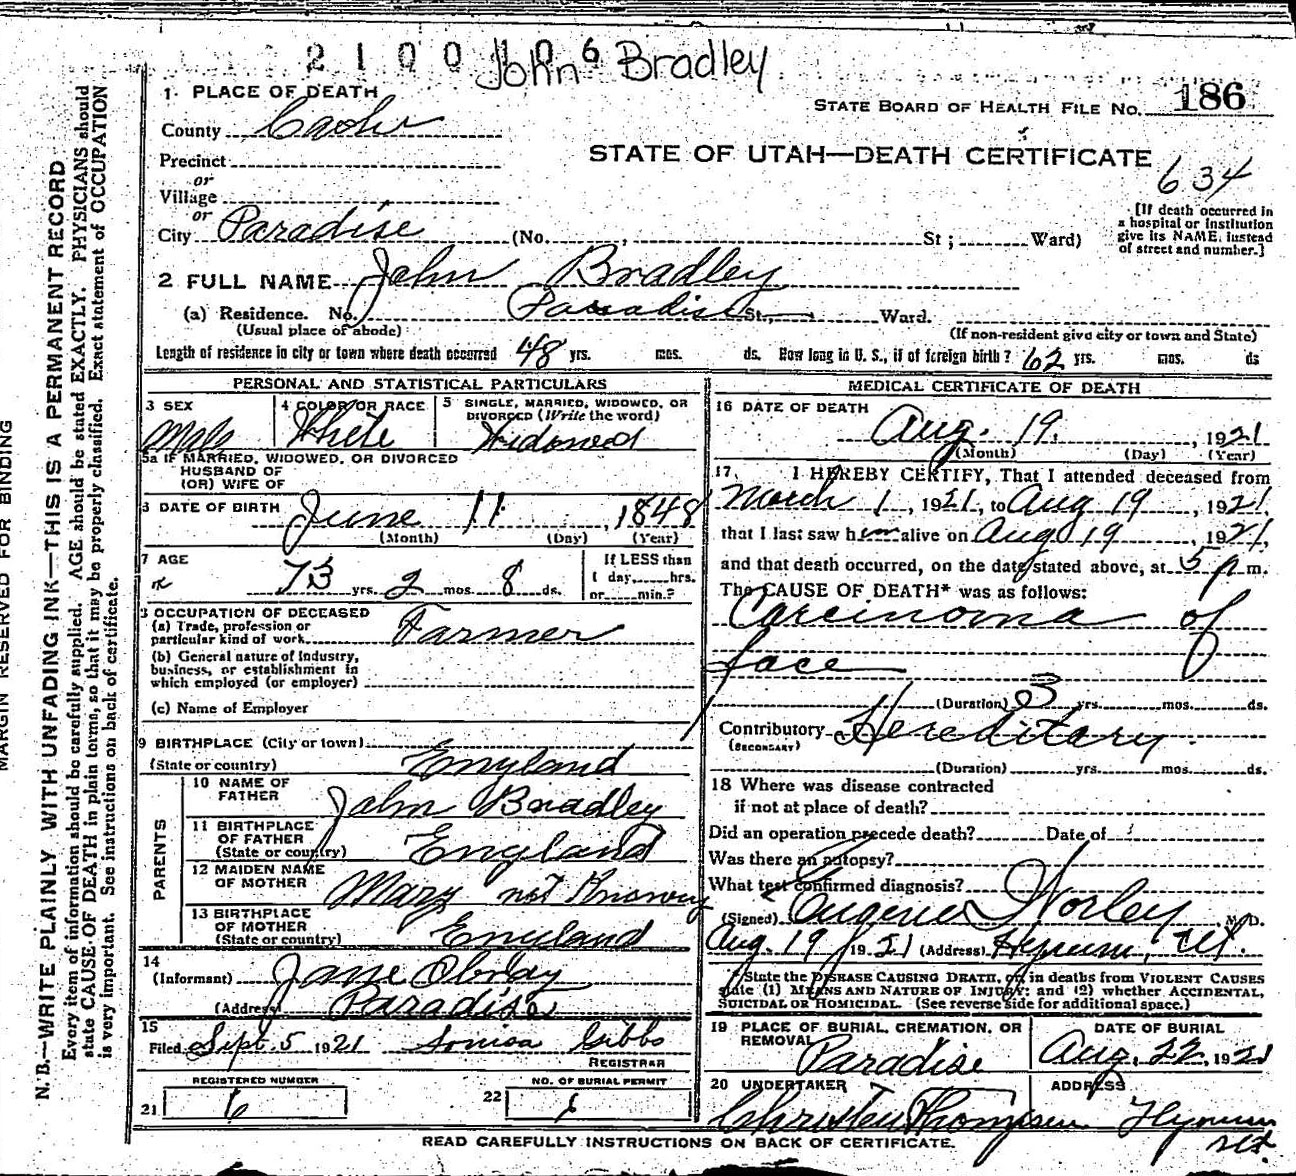 2 1 0 0 1 0 6 John Bradley
1 PLACE OF DEATH
STATE BOARD OF HEALTH FILE NO. 186
County Cache
STATE OF UTAH—DEATH CERTIFICATE
634
Precinct
or
Village
or
City Paradise (No. , St ; Ward)
[If death occurred in
a hospital or institution
give its NAME, instead
of street and number.]
2 FULL NAME John Bradley
(a) Residence. No. Paradise St., Ward.
(Usual place of abode) (If non-resident give city or town and State)
Length of residence in city or town where death occurred 48 yrs. mos. ds. How long in U. S., if of foreign birth? 62 yrs. mos. ds
PERSONAL AND STATISTICAL PARTICULARS
3 SEX Male
4 COLOR OR RACE White
5 SINGLE, MARRIED, WIDOWED, OR
DIVORCED (Write the word)
Widowed
5a IF MARRIED, WIDOWED, OR DIVORCED
HUSBAND OF
(OR) WIFE OF
6 DATE OF BIRTH June 11, 1848
(Month) (Day) (Year)
7 AGE 73 yrs. 2 mos. 8 ds.
If LESS than
1 day, hrs.
or min.?
8 OCCUPATION OF DECEASED
(a) Trade, profession or
particular kind of work Farmer
(b) General nature of industry,
business, or establishment in
which employed (or employer)
(c) Name of Employer
9 BIRTHPLACE (City or town)
(State or country) England
PARENTS
10 NAME OF
FATHER John Bradley
11 BIRTHPLACE
OF FATHER
(State or country) England
12 MAIDEN NAME
OF MOTHER Mary not Known
13 BIRTHPLACE
OF MOTHER
(State or country) England
14
(Informant) Jane Obray
(Address) Paradise
15
Filed Sept. 5 1921 Louisa Gibbs
REGISTRAR
REGISTERED NUMBER
21 6
NO. OF BURIAL PERMIT
22 6
MEDICAL CERTIFICATE OF DEATH
16 DATE OF DEATH
Aug. 19, 1921
(Month) (Day) (Year)
17 I HEREBY CERTIFY, That I attended deceased from
March 1, 1921, to Aug 19, 1921,
that I last saw him alive on Aug 19, 1921,
and that death occurred, on the date stated above, at 5 p m.
The CAUSE OF DEATH* was as follows:
Carcinoma of
face
(Duration) 3 yrs. mos. ds.
Contributory Hereditary.
(SECONDARY)
(Duration) yrs. mos. ds.
18 Where was disease contracted
if not at place of death?
Did an operation precede death? Date of
Was there an autopsy?
What test confirmed diagnosis?
(Signed) Eugene Worley M. D.
Aug. 19 1921 (Address) Hyrum, Ut.
*State the DISEASE CAUSING DEATH, or, in deaths from VIOLENT CAUSES
state (1) MEANS AND NATURE OF INJURY; and (2) whether ACCIDENTAL,
SUICIDAL OR HOMICIDAL. (See reverse side for additional space.)
19 PLACE OF BURIAL, CREMATION, OR
REMOVAL
Paradise
DATE OF BURIAL
Aug. 22, 1921
20 UNDERTAKER
Christen Thompsen
ADDRESS
Hyrum
Ut.
READ CAREFULLY INSTRUCTIONS ON BACK OF CERTIFICATE.
MARGIN RESERVED FOR BINDING
N. B.—WRITE PLAINLY WITH UNFADING INK—THIS IS A PERMANENT RECORD
Every item of information should be carefully supplied. AGE should be stated EXACTLY. PHYSICIANS should
state CAUSE OF DEATH in plain terms, so that it may be properly classified. Exact statement of OCCUPATION
is very important. See instructions on back of certificate.